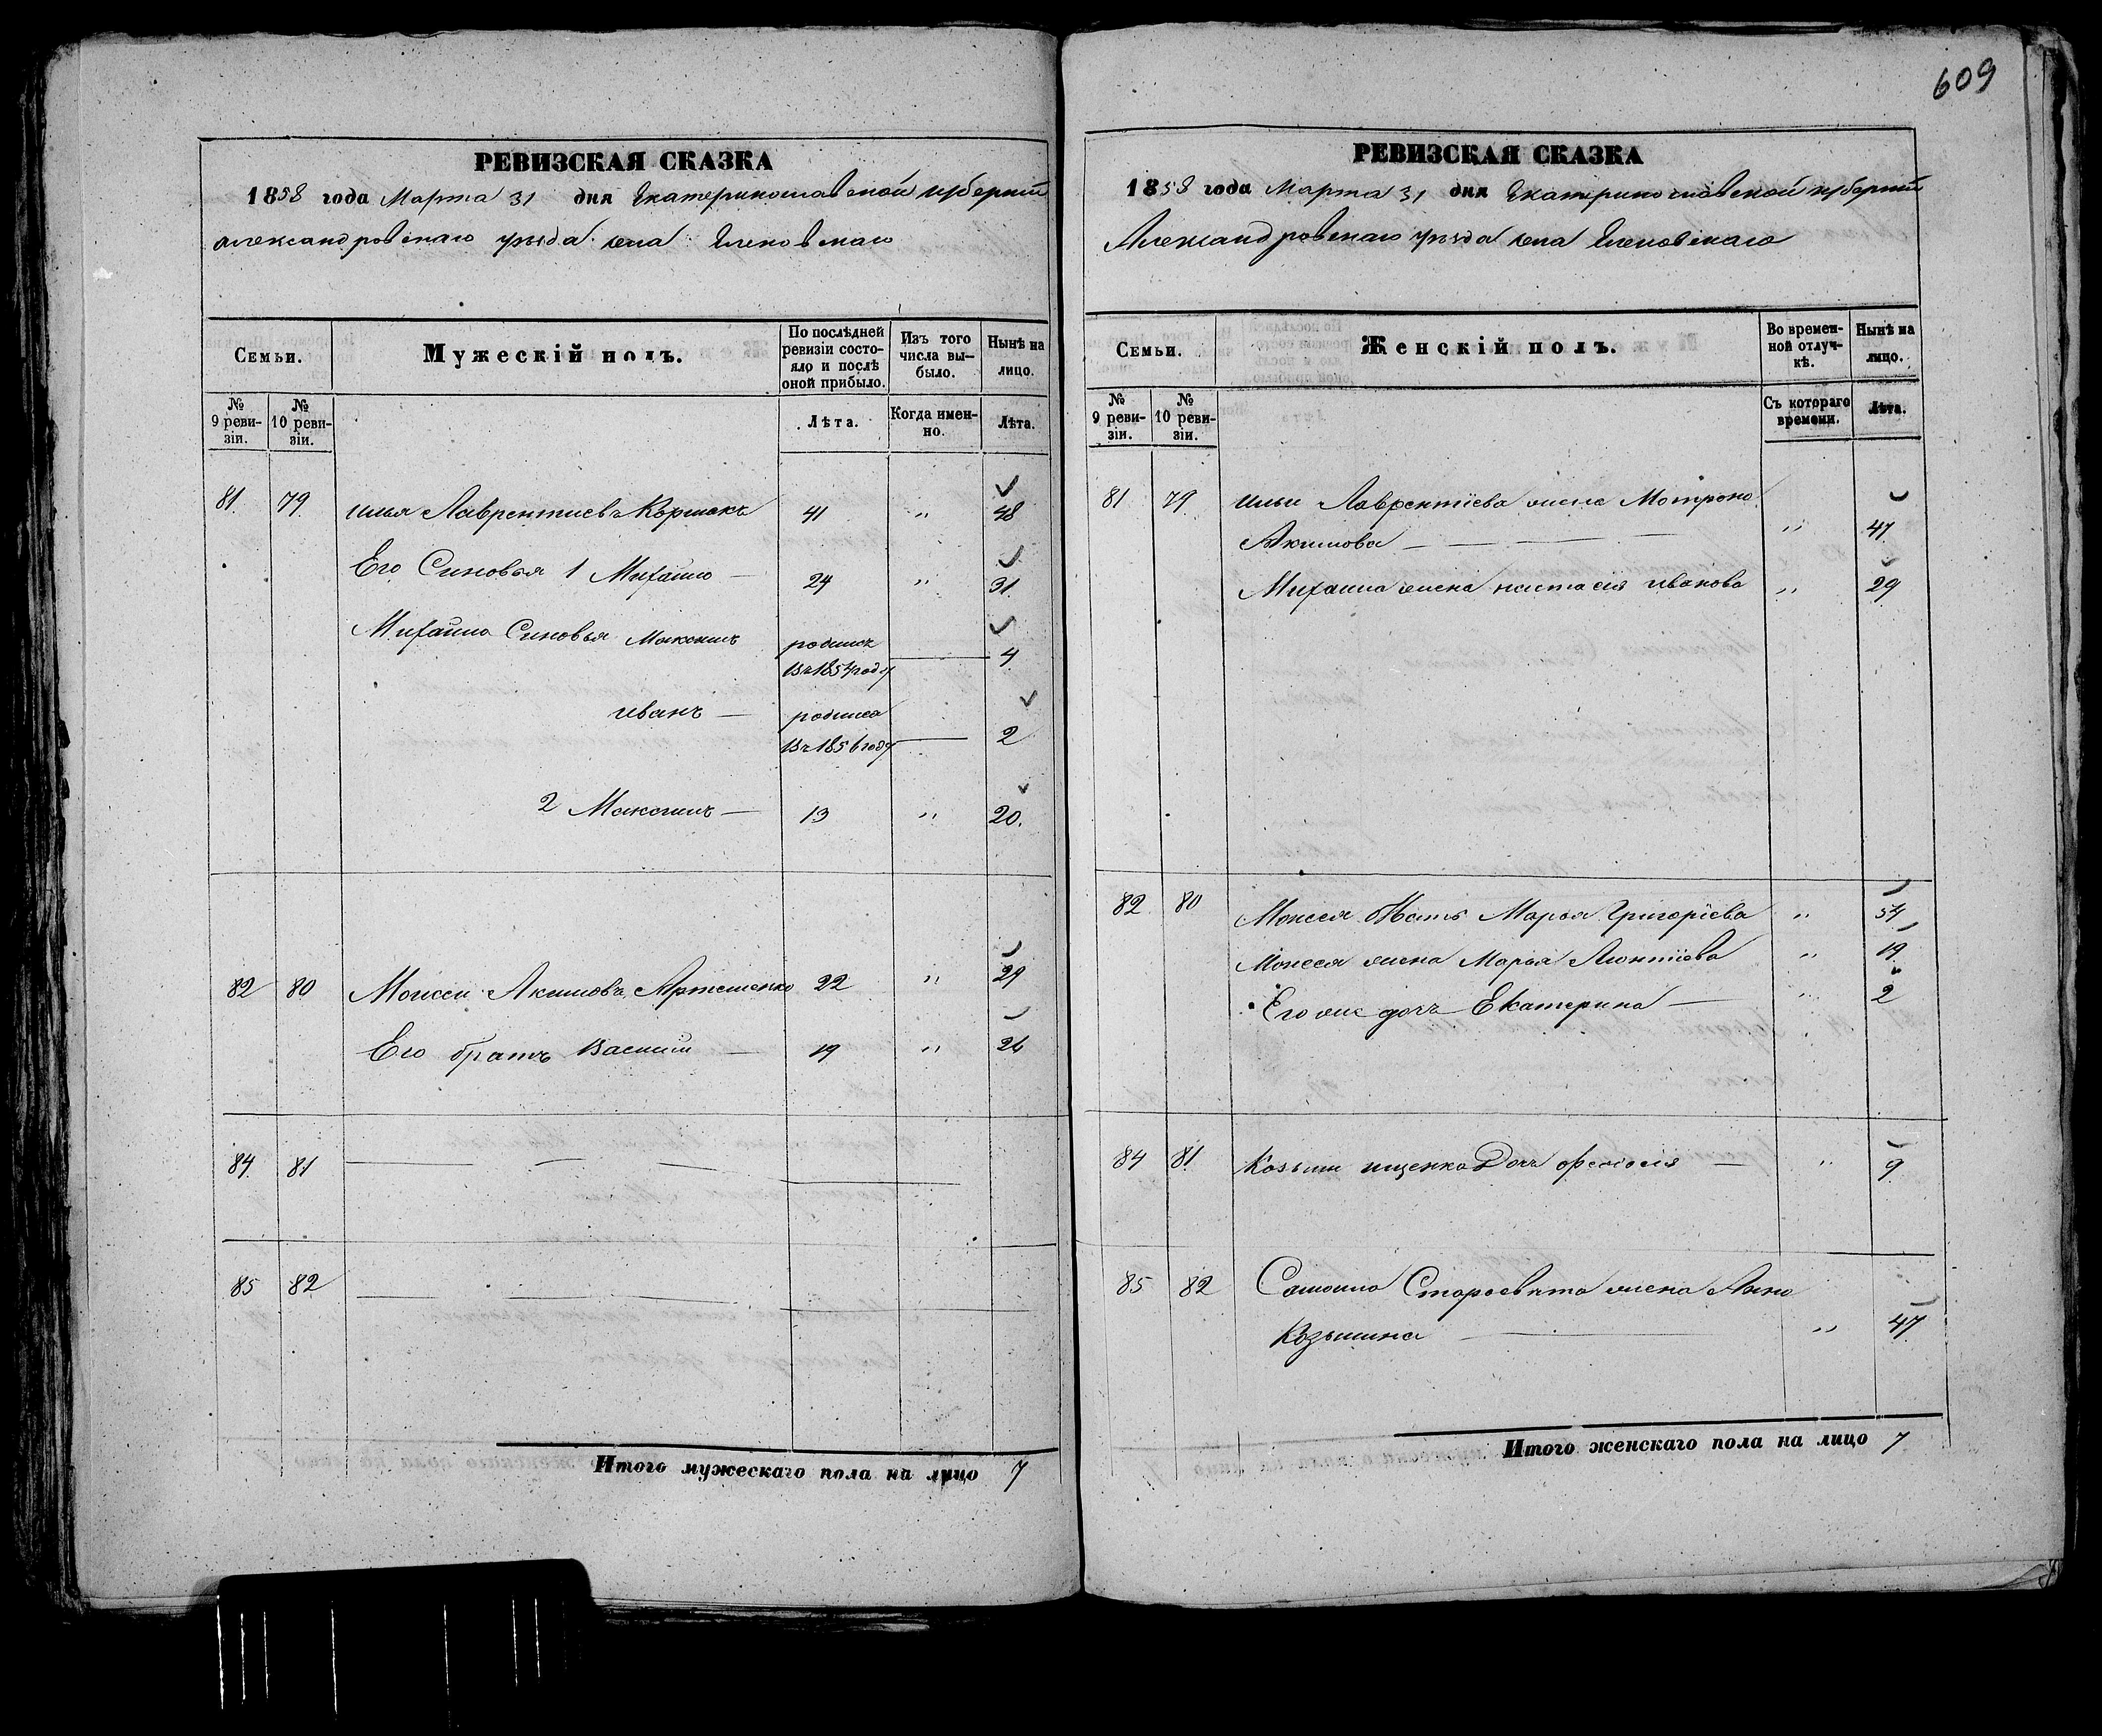 609
РЕВИЗСКАЯ СКАЗКА
1858 года Марта 31 дня Екатеринославской губернии
Александровскаго уезда села Еленовскаго
Семьи.
Мужескій полъ.
По послѣдней ревизіи состояло и послѣ оной прибыло.
Изъ того числа выбыло.
Нынѣ на лицо.
№ 9 ревизіи.
№ 10 ревизіи.
Лѣта.
Когда именно.
Лѣта.
81 79 Илья Лаврентиевъ Коршакъ 41 " 48
Его Синовья 1 Михайло — 24 " 31.
Михайла Синовья Максимъ родился въ 1854 году — 4
Иванъ — родился въ 1856 году — 2
2 Максимъ — 13 " 20.
82 80 Моисей Акимовъ Артеменко 22 " 29
Его братъ Василий — 19 " 26
84 81
85 82
Итого мужескаго пола на лицо 7
РЕВИЗСКАЯ СКАЗКА
1858 года Марта 31 дня Екатеринославской губернии
Александровскаго уезда села Еленовскаго
Семьи.
Женскій полъ.
Во временной отлучкѣ.
Нынѣ на лицо.
№ 9 ревизіи.
№ 10 ревизіи.
Съ котораго времени.
Лѣта.
81 79 Ильи Лаврентіева жена Мотрона
Акимова — " 47
Михаила жена Настасия Иванова " 29
82 80 Моисея Мать Марья Григоріева " 54
Моисея жена Марья Леонтіева " 19
Его же дочь Екатерина — " 2
84 81 Козьми Ищенка Дочь Феодосия — " 9
85 82 Самойла Старосвѣта жена Анна
Козьмина — " 47
Итого женскаго пола на лицо 7